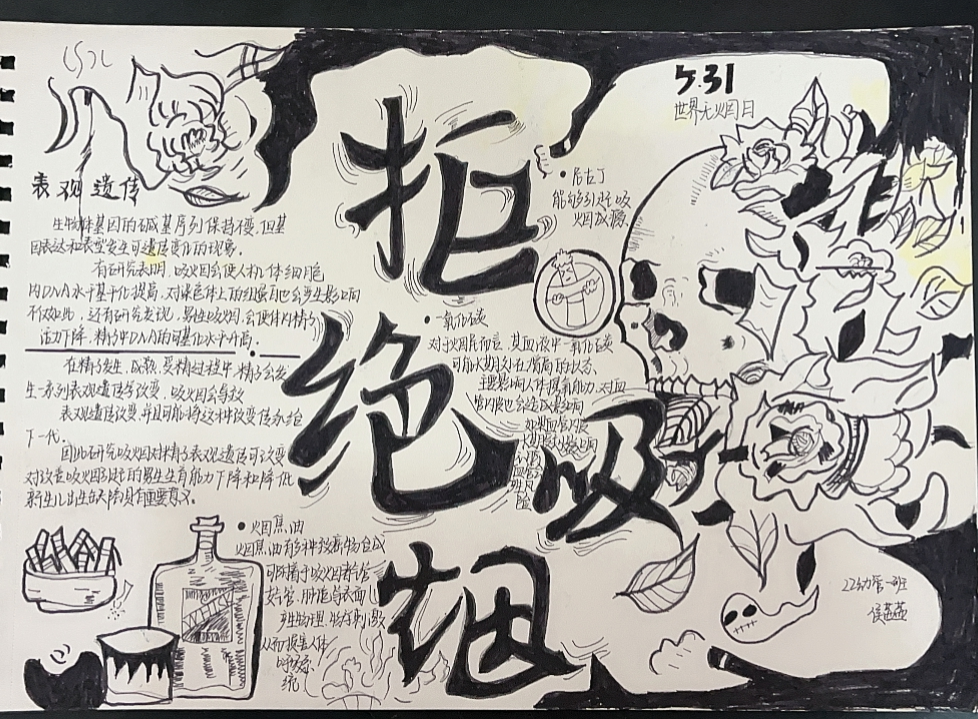 5.31
世界无烟日
拒
绝
吸
烟
表观遗传
生物体基因的碱基序列保持不变,但基
因表达和表型发生可遗传变化的现象。
有研究表明,吸烟会使人机体细胞
内DNA水平甲基化提高,对染色体上的组蛋白也会产生影响
不仅如此,还有研究发现,男性吸烟,会使体内精子
活力下降,精子中DNA的甲基化水平升高。
在精子发生、成熟、受精过程中,精子会发
生一系列表观遗传学改变,吸烟会导致
表观遗传改变,并且可能将这种改变传承给
下一代。
因此研究吸烟对精子表观遗传可改变
对改善吸烟引起的男生生育能力下降和降低
新生儿出生缺陷具有重要意义。
• 尼古丁
能够引起吸
烟成瘾。
• 一氧化碳
对于烟民而言,其血液中一氧化碳
可能长期处在较高的状态。
主要影响人体携氧能力,对血
管内膜也会造成影响
• 烟焦油
烟焦油有多种致癌物合成
可附着于吸烟者气管
支气管、肺泡等表面
产生物理、化学刺激
从而损害人体
呼吸系
统
WHISKY
22幼师一班